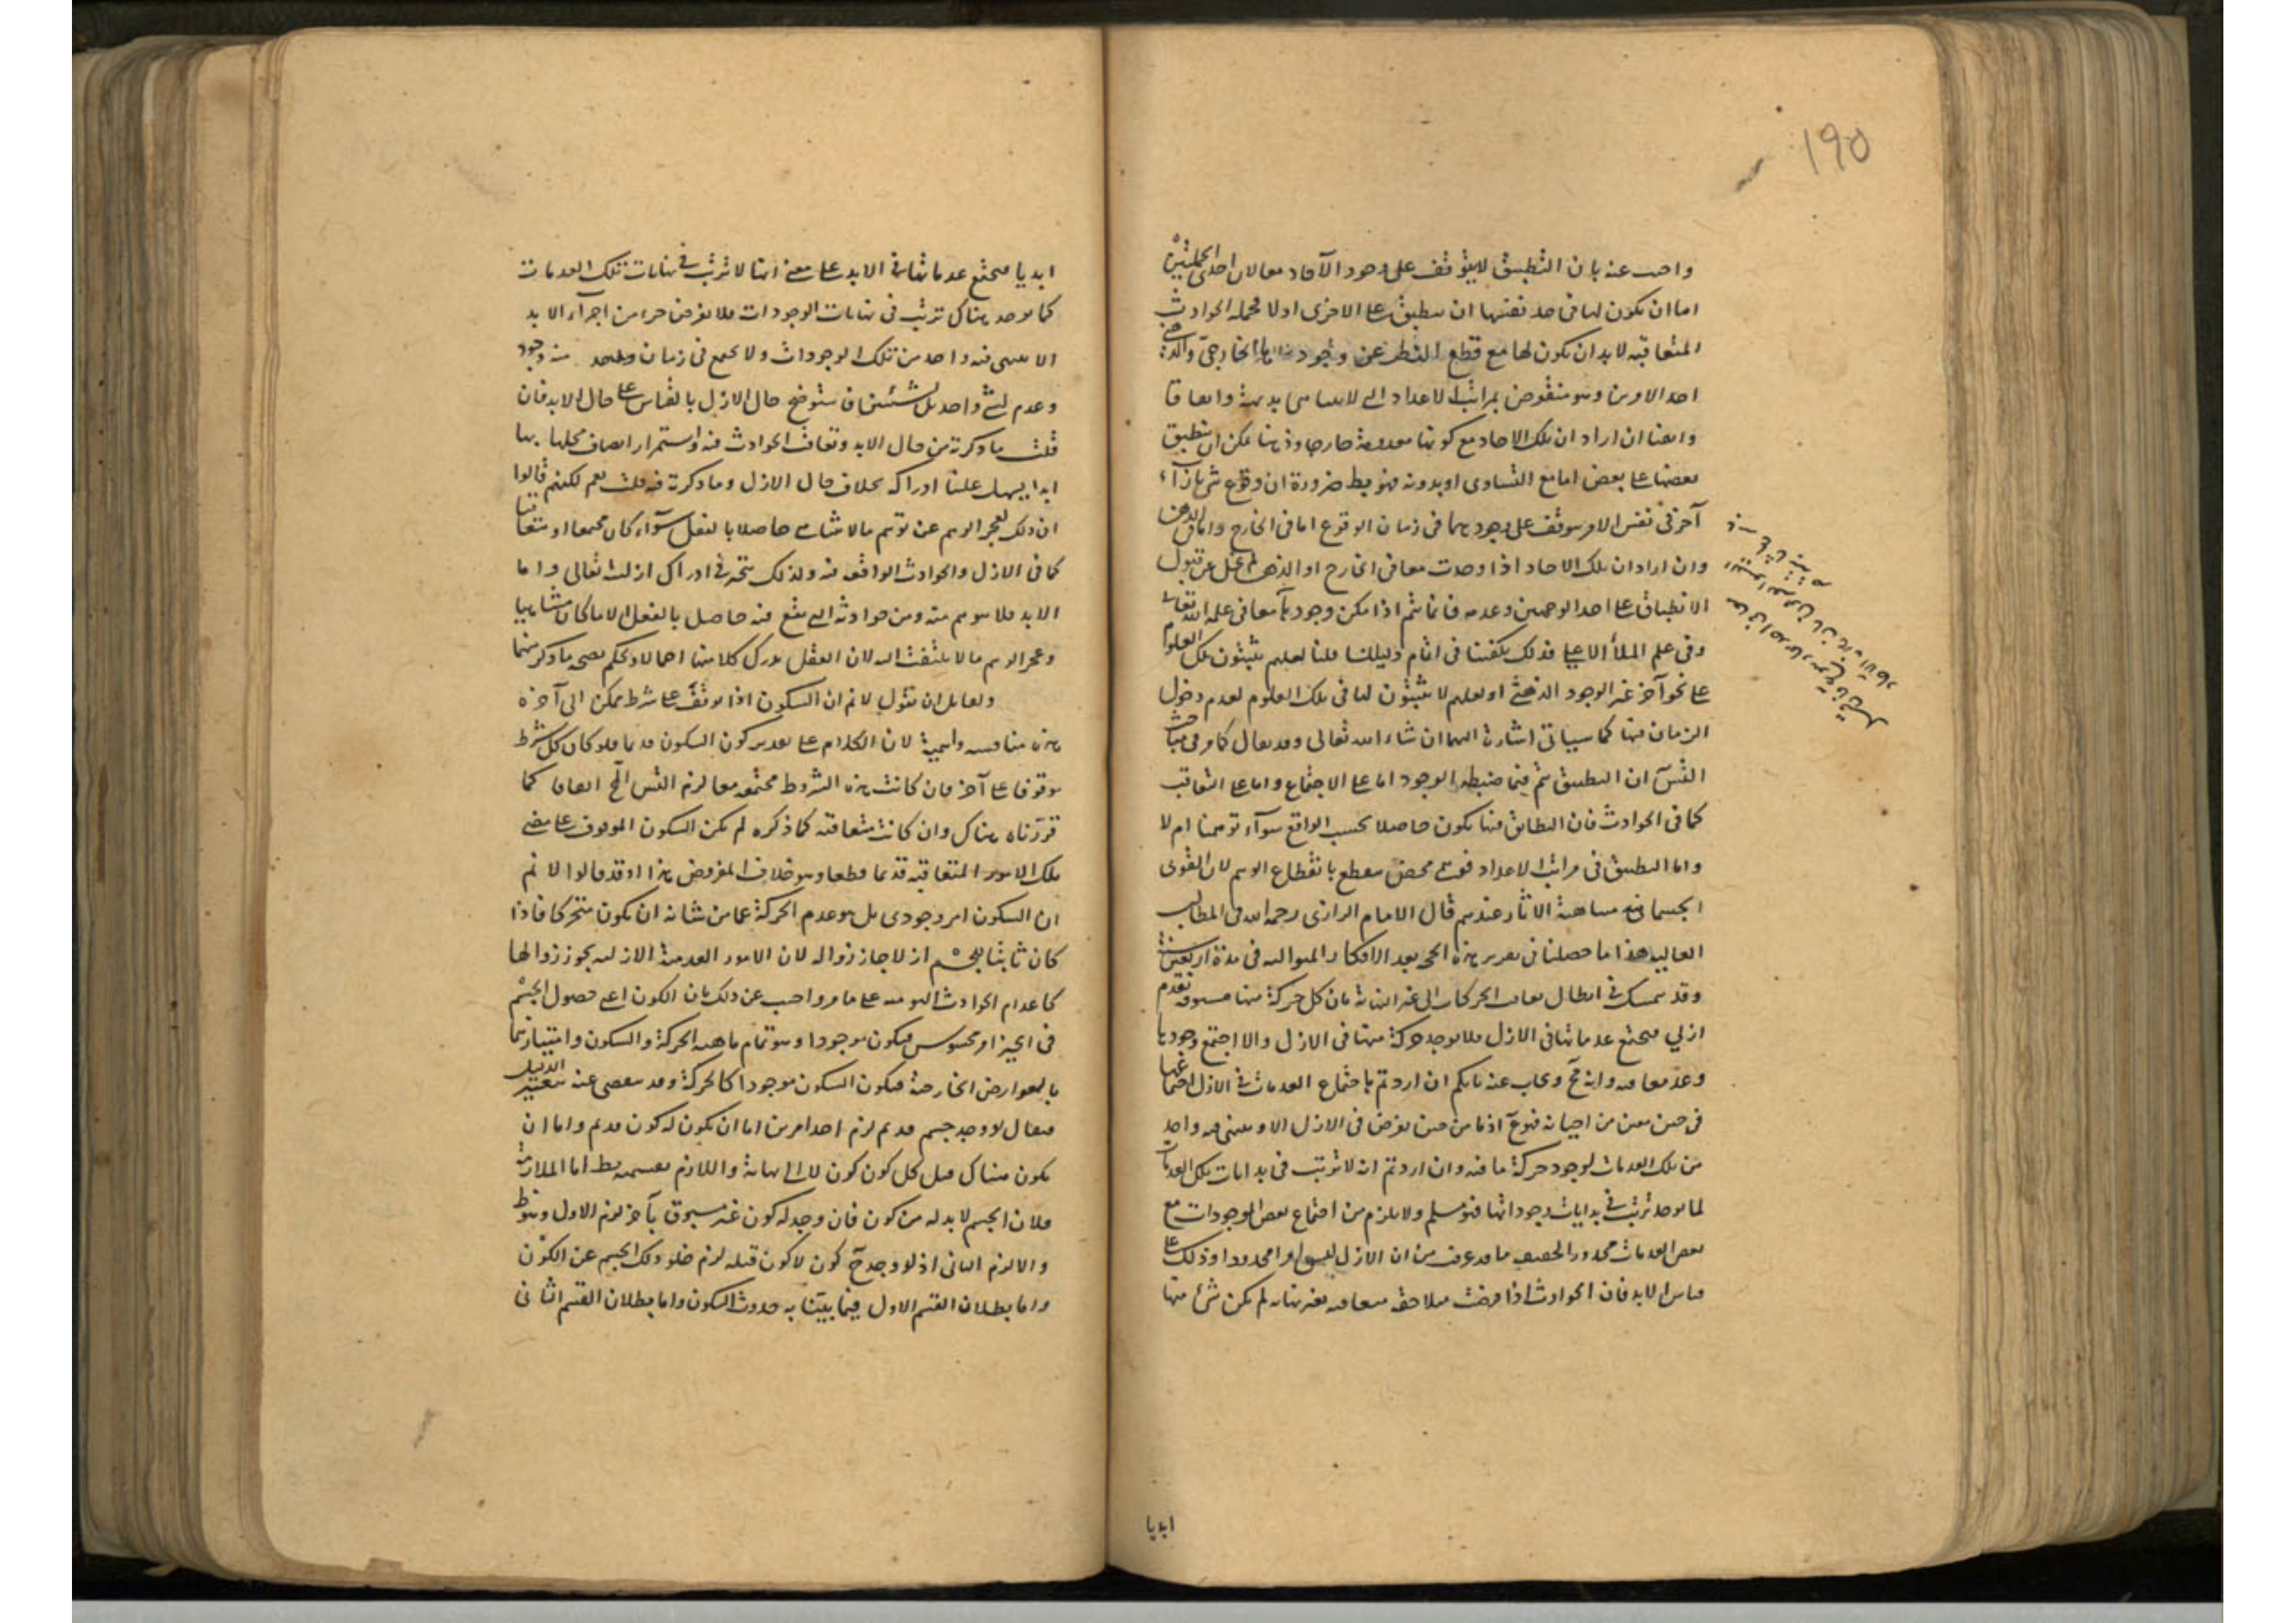 ١٩٥
واجيب عنه بان التطبيق لا يتوقف على وجود الآحاد معا لان احدى الجملتين
اما ان يكون لها في حد نفسها ان ينطبق على الاخرى او لا فجملة الحوادث
المتعاقبة لا بد ان يكون لها مع قطع النظر عن وجود الخارجي والذهني
احد الامرين وهو منقوض بمراتب الاعداد الى لا يتناهى بديهة واتفاقا
وايضا ان اراد ان تلك الآحاد مع كونها معدومة خارجا وذهنا يمكن ان ينطبق
بعضها على بعض اما مع التساوى او بدونه فهو بط ضرورة ان وقوع شئ بازاء
آخر في نفس الامر يتوقف على وجودهما في زمان الوقوع اما في الخارج واما في الذهن
وان اراد ان تلك الآحاد اذا وجدت معا في الخارج او الذهن لم تخل عن قبول
الانطباق على احد الوجهين وعدمه فانما يتم اذا امكن وجودها معا في علم الله تعالى
وفي علم الملأ الاعلى فذلك يكفينا في اتمام دليلنا قلنا لعلهم يثبتون تلك العلوم
على نحو آخر غير الوجود الذهني او لعلهم لا يثبتون لها في تلك العلوم لعدم دخول
الزمان فيها كما سياتى اشارة اليها ان شاء الله تعالى وقد يقال كما مر في مباحث
التس ان التطبيق يتم فيما ضبطه الوجود اما على الاجتماع واما على التعاقب
كما في الحوادث فان التطابق فيها يكون حاصلا بحسب الواقع سواء توهمنا ام لا
واما التطبيق في مراتب الاعداد فوهمى محض ينقطع بانقطاع الوهم لان القوى
الجسمانية متناهية الآثار عندهم قال الامام الرازى رحمه الله في المطالب
العالية هذا ما حصلنا في تقرير هذه الحجة بعد الافكار المتوالية في مدة اربعين سنة
وقد يتمسك في ابطال تعاقب الحركات الى غير النهاية بان كل حركة منها مسبوقة بعدم
ازلي فيجتمع عدماتها في الازل فلا يوجد حركة منها في الازل والا اجتمع وجودها
وعدمها فيه وانه مح ويجاب عنه بانكم ان اردتم باجتماع العدمات في الازل اجتماعها
في حين معين من احيانه فهو مم اذ ما من حين يفرض في الازل الا وينتفى فيه واحد
من تلك العدمات لوجود حركة ما فيه وان اردتم انه لا ترتب في بدايات تلك العدمات
كما يوجد ترتب في بدايات وجوداتها فهو مسلم ولا يلزم من اجتماع بعض الوجودات مع
بعض العدمات محذور التحقيق ما قد عرفت من ان الازل ليس امرا محدودا وذلك على
قياس الابد فان الحوادث اذا فرضت متلاحقة متعاقبة بغير نهاية لم يكن شئ منها
ابديا
ابديا فيجتمع عدماتها في الابد على معنى انها لا ترتب في نهايات تلك العدمات
كما يوجد هناك ترتب في نهايات الوجودات فلا يفرض جزء من اجزاء الابد
الا ينتهى فيه واحد من تلك الوجودات ولا يجتمع في زمان واحد منه وجود
وعدم لشئ واحد بل لشيئين فاستوضح حال الازل بالقياس على حال الابد فان
قلت ما ذكرته من حال الابد وتعاقب الحوادث فيه واستمرار اتصاف محلها بها
ابدا يسهل علينا ادراكه بخلاف حال الازل وما ذكرته فيه قلت نعم لكنهم قالوا
ان ذلك لعجز الوهم عن توهم مالا يتناهى حاصلا بالفعل سواء كان مجتمعا او متعاقبا
كما في الازل والحوادث الواقعة فيه ولذلك يتحير في ادراك ازليته تعالى واما
الابد فلا يتوهم منه ومن حوادثه التي يقع فيه حاصل بالفعل الا ما كان متناهيا
وعجز الوهم مالا يلتفت اليه لان العقل يدرك كلا منها اجمالا ويحكم بصحة ما ذكر منهما
ولقائل ان يقول لا نم ان السكون اذا توقف على شرط ممكن الى آخره
هذه مناقشة واهية لان الكلام على تقدير كون السكون قديما فلو كان كل شرط
موقوفا على آخر فان كانت هذه الشروط مجتمعة معا لزم التس المح اتفاقا كما
قررناه هناك وان كانت متعاقبة كما ذكره لم يكن السكون الموقوف على مضى
تلك الامور المتعاقبة قديما قطعا وهو خلاف المفروض هذا وقد قالوا لا نم
ان السكون امر وجودى بل هو عدم الحركة عما من شانه ان يكون متحركا فاذا
كان ثابتا للجسم ازلا جاز زواله لان الامور العدمية الازلية يجوز زوالها
كاعدام الحوادث اليومية على ما مر واجيب عن ذلك بان الكون اعنى حصول الجسم
في الحيز امر محسوس فيكون موجودا وهو تمام ماهية الحركة والسكون وامتيازهما
بالعوارض الخارجة فيكون السكون موجودا كالحركة وقد يتفصى عنه بتغيير الدليل
فيقال لو وجد جسم قديم لزم احد امرين اما ان يكون له كون قديم واما ان
يكون هناك قبل كل كون كون لا الى نهاية واللازم بقسميه بط اما الملازمة
فلان الجسم لا بد له من كون فان وجد له كون غير مسبوق بآخر لزم الاول وهو ظ
والا لزم الثانى اذ لو وجد ح كون لا كون قبله لزم خلو ذلك الجسم عن الكون
واما بطلان القسم الاول فيما بينا به حدوث السكون واما بطلان القسم الثانى